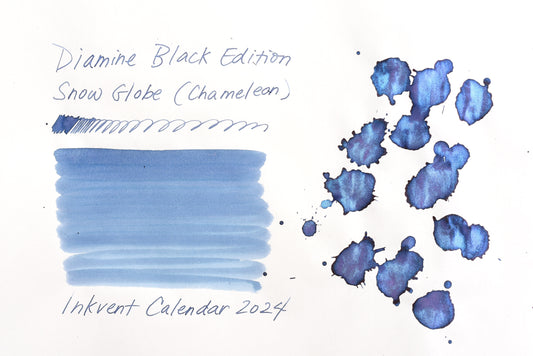 Diamine Black Edition
Snow Globe (Chameleon)
Inkvent Calendar 2024